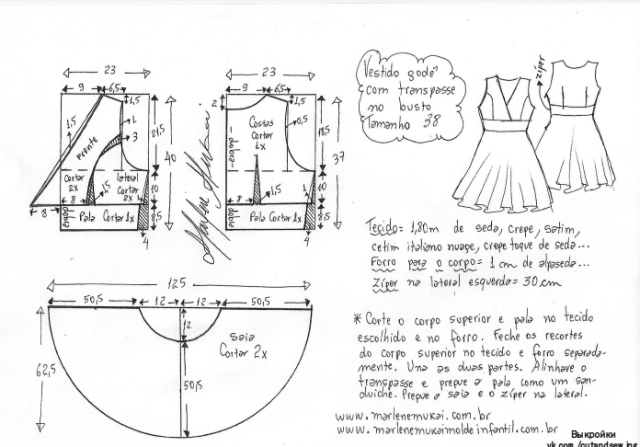 23
9
6,5
1,5
1,5
1
3
Frente
21,5
40
Cortar
2x
lateral
Cortar
2x
8
1,5
10
dobra
Pala Cortar 1x
8,5
3
4
Marlene Mukai
23
9
6,5
2
1,5
Costas
Cortar
1x
0,5
dobra
18,5
37
8
1,5
10
dobra
Pala Cortar 1x
8,5
4
Vestido godê
com transpasse
no busto
Tamanho 38
zíper
125
50,5
12
12
50,5
12
Saia
Cortar 2x
62,5
50,5
Tecido= 1,80m de seda, crepe, satim,
cetim italiano nuage, crepe toque de seda...
Forro para o corpo= 1 cm de alpaseda...
Zíper na lateral esquerda= 30 cm
* Corte o corpo superior e pala no tecido
escolhido e no forro. Feche os recortes
do corpo superior no tecido e forro separada-
mente. Una as duas partes. Alinhave o
transpasse e pregue a pala como um san-
duiche. Pregue a saia e o zíper na lateral.
www.marlenemukai.com.br
www.marlenemukaimoldeinfantil.com.br
Выкройки